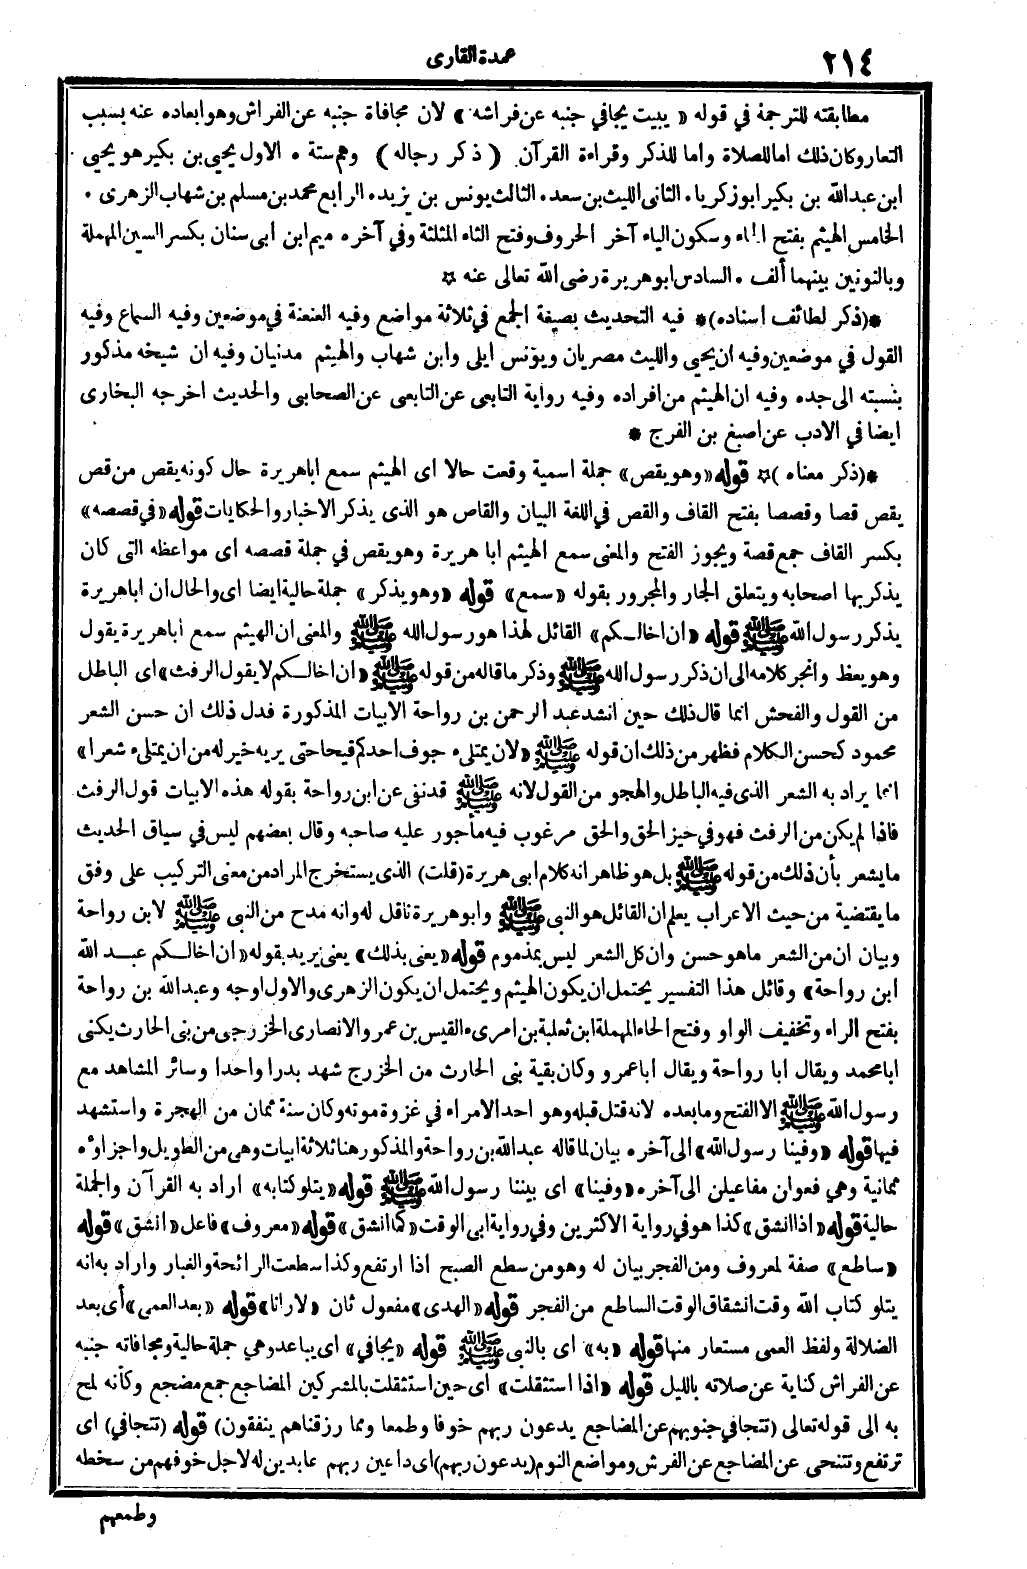 ٢١٤
عمدة القارى
مطابقته للترجمة في قوله «يبيت يجافي جنبه عن فراشه» لان مجافاة جنبه عن الفراش وهو ابعاده عنه بسبب
التعار وكان ذلك اما للصلاة واما للذكر وقراءة القرآن (ذكر رجاله) وهم ستة • الاول يحيى بن بكير هو يحيى
ابن عبدالله بن بكير ابو زكريا • الثانى الليث بن سعد • الثالث يونس بن يزيد • الرابع محمد بن مسلم بن شهاب الزهرى •
الخامس الهيثم بفتح الهاء وسكون الياء آخر الحروف وفتح الثاء المثلثة وفي آخره ميم ابن ابى سنان بكسر السين المهملة
وبالنونين بينهما ألف • السادس ابو هريرة رضى الله تعالى عنه ☆
*(ذكر لطائف اسناده)* فيه التحديث بصيغة الجمع في ثلاثة مواضع وفيه العنعنة في موضعين وفيه السماع وفيه
القول في موضعين وفيه ان يحيى والليث مصريان ويونس ايلى وابن شهاب والهيثم مدنيان وفيه ان شيخه مذكور
بنسبته الى جده وفيه ان الهيثم من افراده وفيه رواية التابعى عن التابعى عن الصحابى والحديث اخرجه البخارى
ايضا في الادب عن اصبغ بن الفرج *
*(ذكر معناه)☆ قوله «وهو يقص» جملة اسمية وقعت حالا اى الهيثم سمع اباهريرة حال كونه يقص من قص
يقص قصا وقصصا بفتح القاف والقص في اللغة البيان والقاص هو الذى يذكر الاخبار والحكايات قوله «في قصصه»
بكسر القاف جمع قصة ويجوز الفتح والمعنى سمع الهيثم ابا هريرة وهو يقص في جملة قصصه اى مواعظه التى كان
يذكر بها اصحابه ويتعلق الجار والمجرور بقوله «سمع» قوله «وهو يذكر» جملة حالية ايضا اى والحال ان اباهريرة
يذكر رسول الله ﷺ قوله «ان اخالكم» القائل لهذا هو رسول الله ﷺ والمعنى ان الهيثم سمع أباهريرة يقول
وهو يعظ وانجر كلامه الى ان ذكر رسول الله ﷺ وذكر ما قاله من قوله ﷺ «ان اخالكم لا يقول الرفث» اى الباطل
من القول والفحش انما قال ذلك حين انشد عبد الرحمن بن رواحة الابيات المذكورة فدل ذلك ان حسن الشعر
محمود كحسن الكلام فظهر من ذلك ان قوله ﷺ «لان يمتلىء جوف احدكم قيحا حتى يريه خير له من ان يمتلىء شعرا»
انما يراد به الشعر الذى فيه الباطل والهجو من القول لانه ﷺ قد نفى عن ابن رواحة بقوله هذه الابيات قول الرفث
فاذا لم يكن من الرفث فهو في حيز الحق والحق مرغوب فيه مأجور عليه صاحبه وقال بعضهم ليس في سياق الحديث
ما يشعر بأن ذلك من قوله ﷺ بل هو ظاهر انه كلام ابى هريرة (قلت) الذى يستخرج المراد من معنى التركيب على وفق
ما يقتضية من حيث الاعراب يعلم ان القائل هو النبى ﷺ وابو هريرة ناقل له وانه مدح من النبى ﷺ لابن رواحة
وبيان ان من الشعر ما هو حسن وان كل الشعر ليس بمذموم قوله «يعنى بذلك» يعنى يريد بقوله «ان اخالكم عبد الله
ابن رواحة» وقائل هذا التفسير يحتمل ان يكون الهيثم ويحتمل ان يكون الزهرى والاول اوجه وعبدالله بن رواحة
بفتح الراء وتخفيف الواو وفتح الحاء المهملة ابن ثعلبة بن امرىء القيس بن عمرو الانصارى الخزرجى من بنى الحارث يكنى
ابا محمد ويقال ابا رواحة ويقال اباعمرو وكان بقية بنى الحارث من الخزرج شهد بدرا واحدا وسائر المشاهد مع
رسول الله ﷺ الا الفتح وما بعده لانه قتل قبله وهو احد الامراء في غزوة موته وكان سنة ثمان من الهجرة واستشهد
فيها قوله «وفينا رسول الله» الى آخره بيان لما قاله عبدالله بن رواحة والمذكور هنا ثلاثة ابيات وهى من الطويل واجزاؤه
ثمانية وهي فعوان مفاعيلن الى آخره «وفينا» اى بيننا رسول الله ﷺ قوله «يتلو كتابه» اراد به القرآن والجملة
حالية قوله «اذا انشق» كذا هو في رواية الاكثرين وفي رواية ابى الوقت «كما انشق» قوله «معروف» فاعل «انشق» قوله
«ساطع» صفة لمعروف ومن الفجر بيان له وهو من سطع الصبح اذا ارتفع وكذا سطعت الرائحة والغبار واراد به انه
يتلو كتاب الله وقت انشقاق الوقت الساطع من الفجر قوله «الهدى» مفعول ثان «لارانا» قوله «بعد العمى» أى بعد
الضلالة ولفظ العمى مستعار منها قوله «به» اى بالنبى ﷺ قوله «يجافي» اى يباعد وهي جملة حالية ومجافاته جنبه
عن الفراش كناية عن صلاته بالليل قوله «اذا استثقلت» اى حين استثقلت بالمشركين المضاجع جمع مضجع وكأنه لمح
به الى قوله تعالى (تتجافي جنوبهم عن المضاجع يدعون ربهم خوفا وطمعا ومما رزقناهم ينفقون) قوله (تتجافي) اى
ترتفع وتتنحى عن المضاجع عن الفرش ومواضع النوم (يدعون ربهم) اى داعين ربهم عابدين له لاجل خوفهم من سخطه
وطمعهم